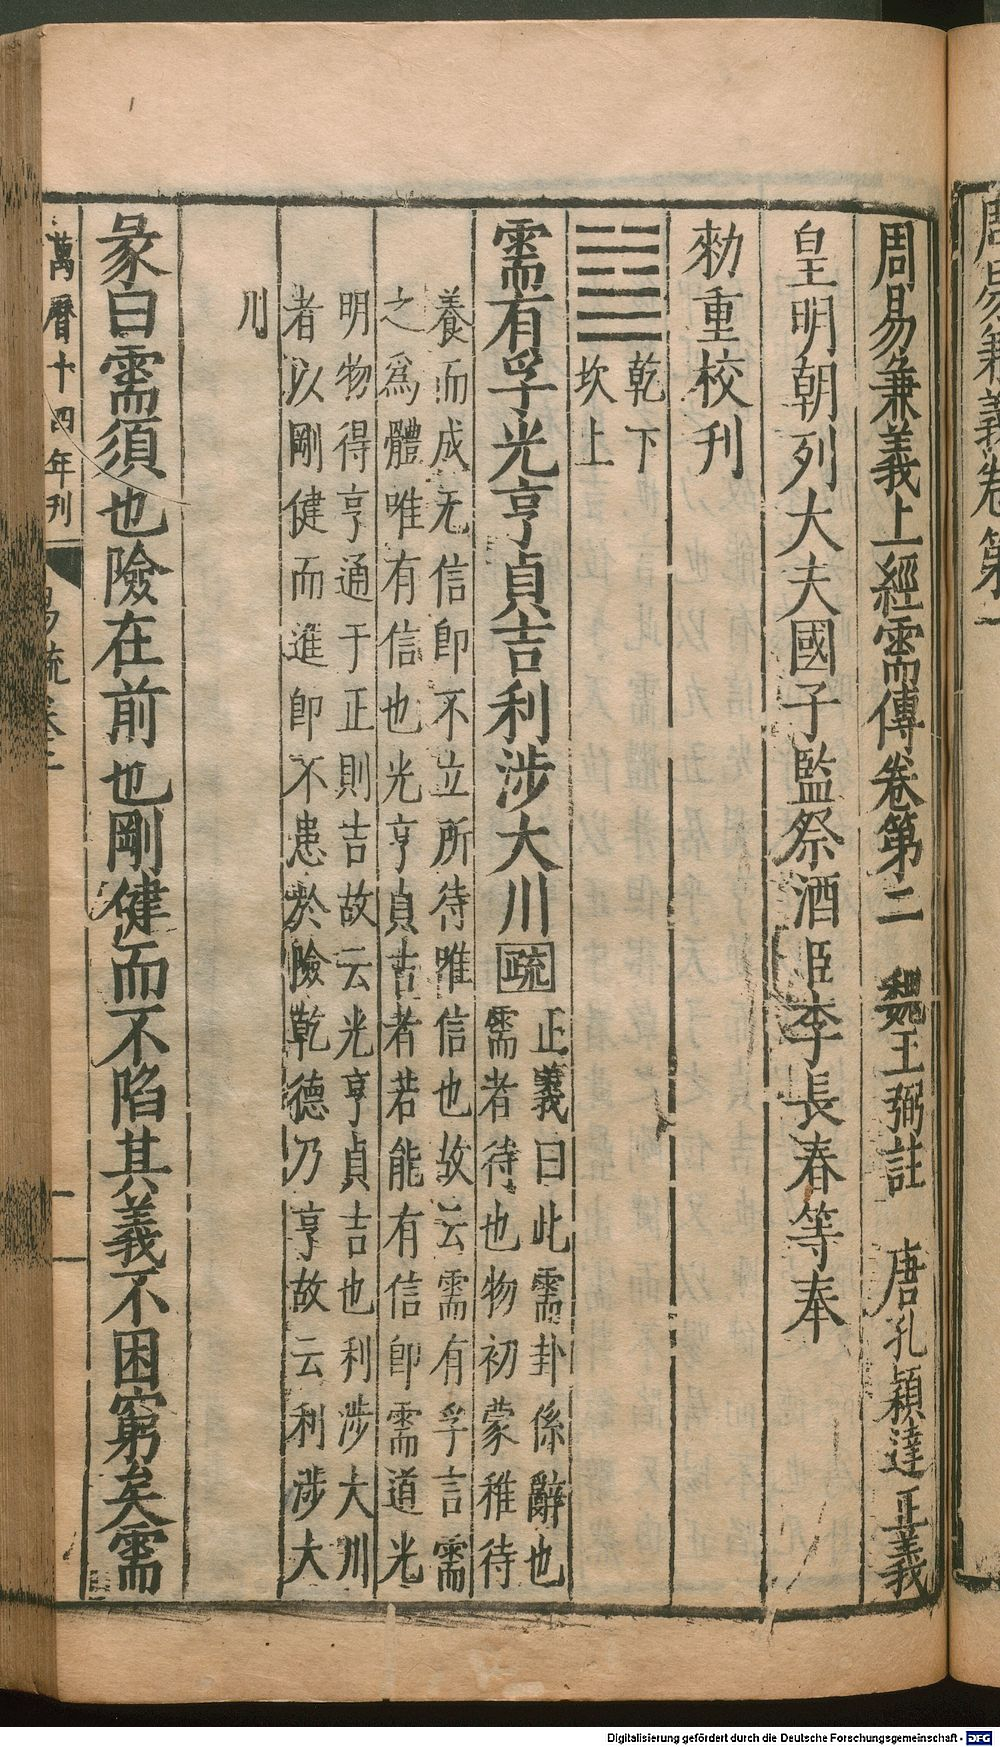 周易兼義上經需傳卷第二　魏王弼註　唐孔穎達正義
皇明朝列大夫國子監祭酒臣李長春等奉
勑重校刊
乾下
坎上
需有孚光亨貞吉利涉大川疏
正義曰此需卦係辭也
需者待也物初蒙稚待
養而成无信即不立所待唯信也故云需有孚言需
之爲體唯有信也光亨貞吉者若能有信即需道光
明物得亨通于正則吉故云光亨貞吉也利涉大川
者以剛健而進即不患於險乾德乃亨故云利涉大
川
彖曰需須也險在前也剛健而不陷其義不困窮矣需
萬曆十四年刊
易疏卷二
Digitalisierung gefördert durch die Deutsche Forschungsgemeinschaft - DFG